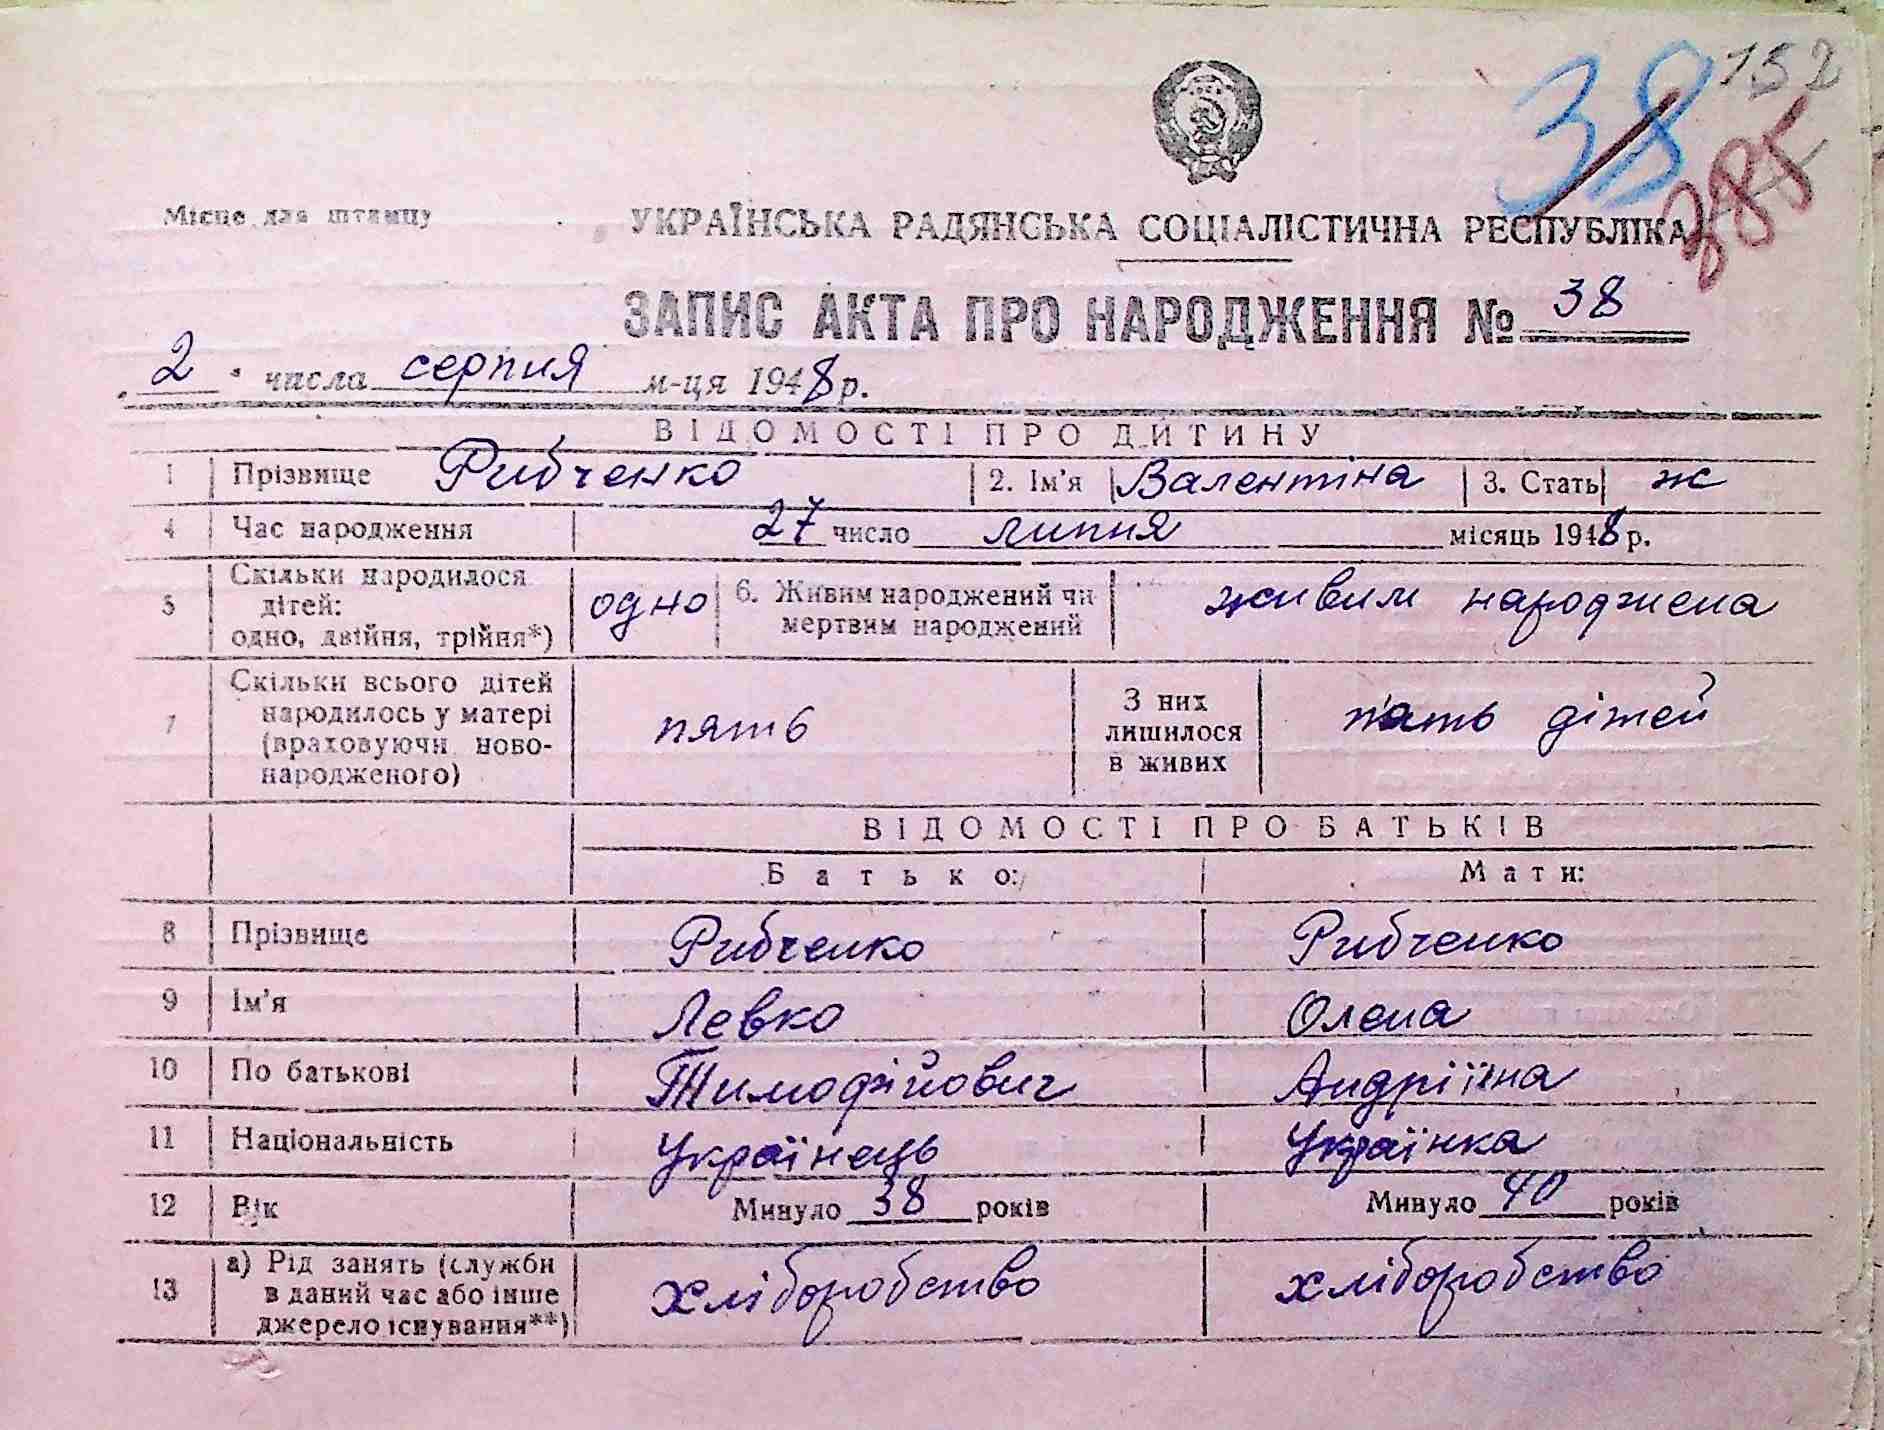 38 152
385
Місце для штампу
УКРАЇНСЬКА РАДЯНСЬКА СОЦІАЛІСТИЧНА РЕСПУБЛІКА
ЗАПИС АКТА ПРО НАРОДЖЕННЯ № 38
2 числа серпня м-ця 1948 р.
ВІДОМОСТІ ПРО ДИТИНУ
1 Прізвище Рибченко 2. Ім'я Валентіна 3. Стать ж
4 Час народження 27 число липня місяць 1948 р.
5 Скільки народилося дітей: одно, двійня, трійня*) одно 6. Живим народжений чи мертвим народжений живим народжена
7 Скільки всього дітей народилось у матері (враховуючи новонародженого) пять З них лишилося в живих п'ять дітей
ВІДОМОСТІ ПРО БАТЬКІВ
Батько: Мати:
8 Прізвище Рибченко Рибченко
9 Ім'я Левко Олена
10 По батькові Тимофійович Андріїна
11 Національність Українець Українка
12 Вік Минуло 38 років Минуло 40 років
13 а) Рід занять (служби в даний час або інше джерело існування**) хліборобство хліборобство